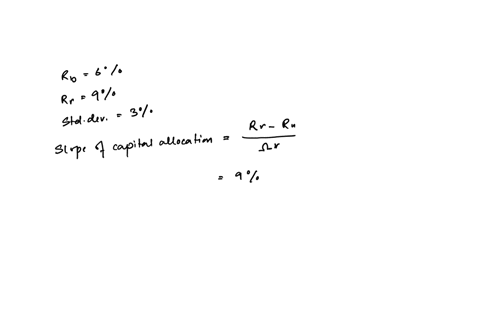 R_b = 6%
R_r = 9%
Std.dev. = 3%
Slope of capital allocation = (Rr - Ru) / Ωr
= 9%